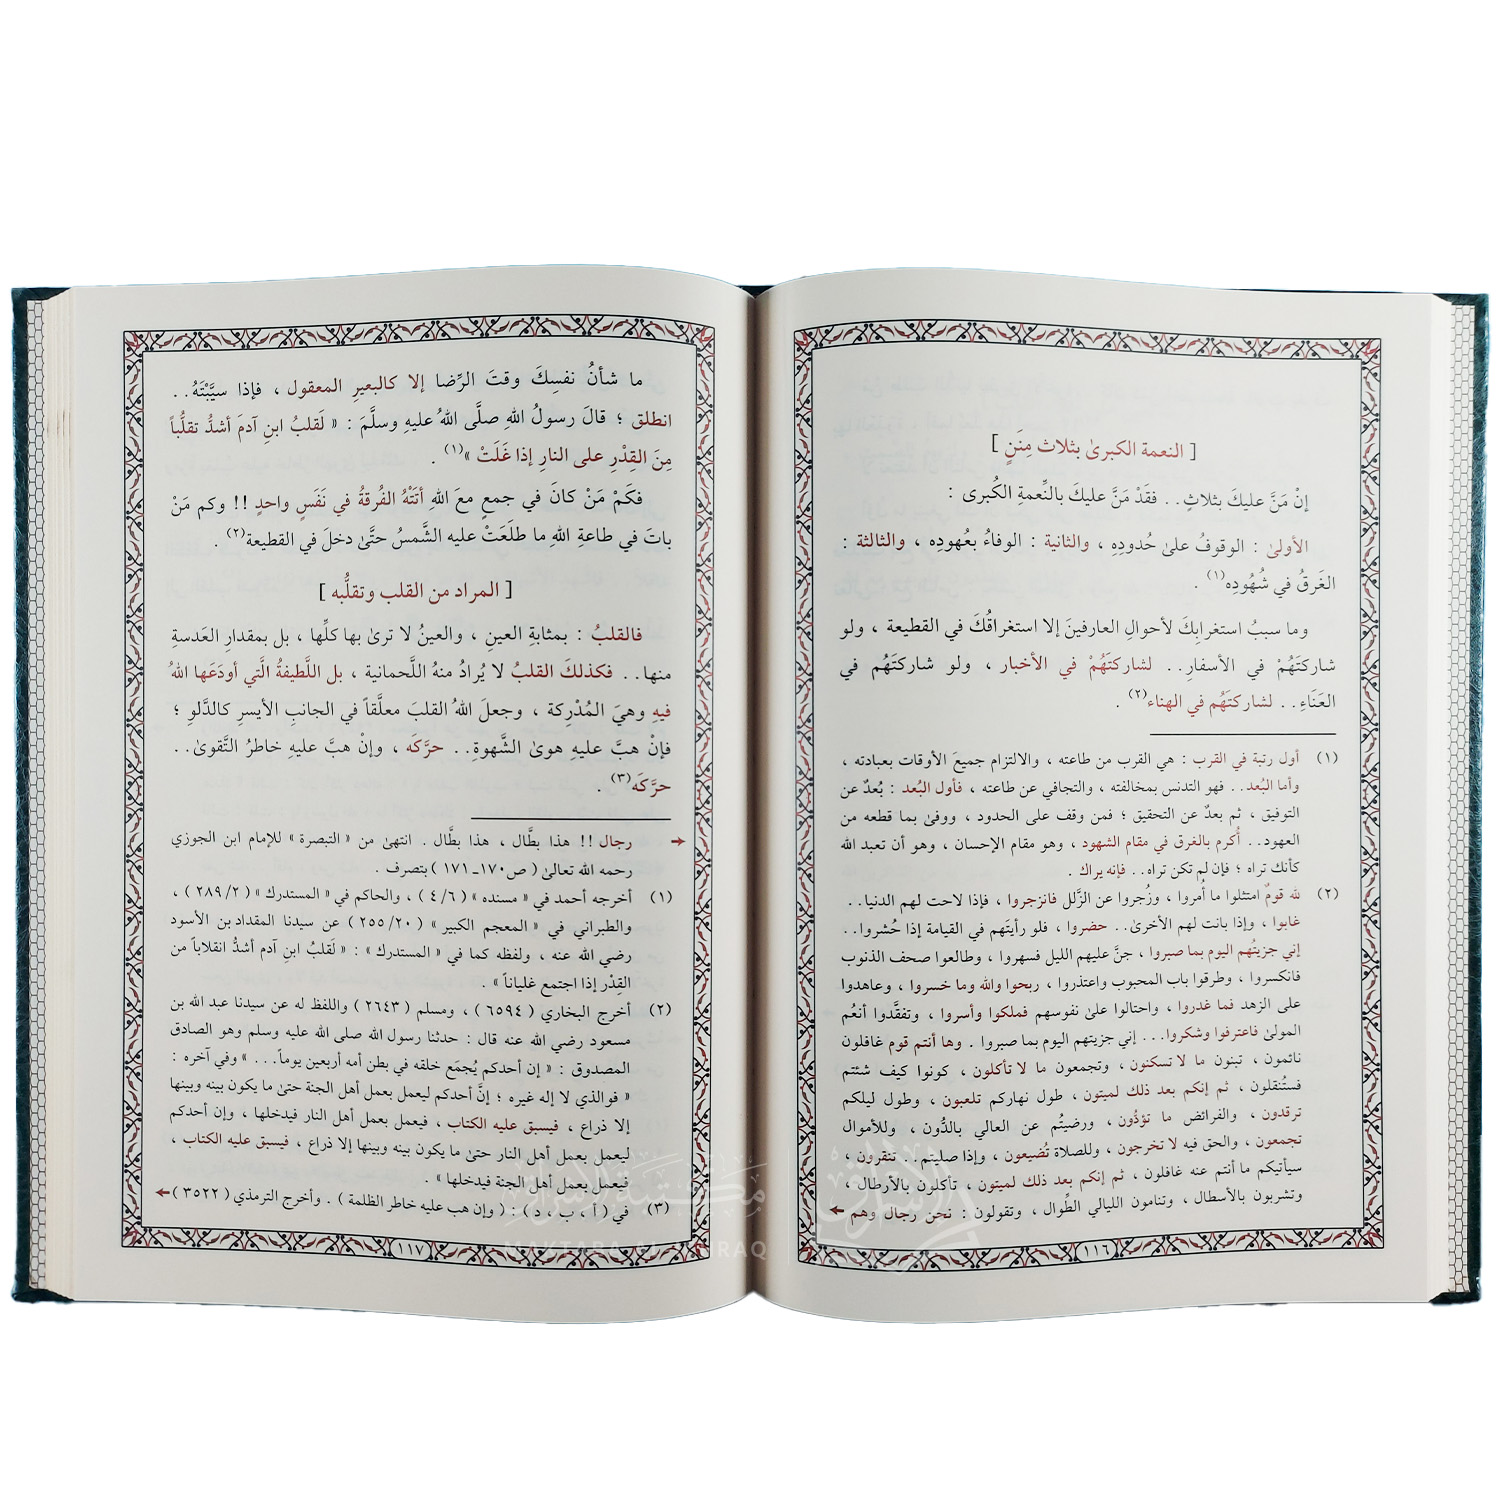 [ النعمة الكبرىٰ بثلاث مِنَنٍ ]
إنْ مَنَّ عليكَ بثلاثٍ.. فقَدْ مَنَّ عليكَ بالنِّعمةِ الكُبرى :
الأولىٰ : الوقوفُ علىٰ حُدودِهِ ، والثانية : الوفاءُ بعُهودِه ، والثالثة :
الغَرقُ في شُهُودِه(١) .
وما سببُ استغرابِكَ لأحوالِ العارفينَ إلا استغراقُكَ في القطيعة ، ولو
شاركتَهُمْ في الأسفارِ.. لشاركتَهُمْ في الأخبار ، ولو شاركتَهُم في
العَنَاءِ.. لشاركتَهُم في الهناء(٢) .
(١) أول رتبة في القرب : هي القرب من طاعته ، والالتزام جميعَ الأوقات بعبادته ،
وأما البُعد.. فهو التدنس بمخالفته ، والتجافي عن طاعته ، فأول البُعد : بُعدٌ عن
التوفيق ، ثم بعدٌ عن التحقيق ؛ فمن وقف على الحدود ، ووفىٰ بما قطعه من
العهود.. أُكرم بالغرق في مقام الشهود ، وهو مقام الإحسان ، وهو أن تعبد الله
كأنك تراه ؛ فإن لم تكن تراه.. فإنه يراك .
(٢) لله قومٌ امتثلوا ما أُمروا ، وزُجروا عن الزَّلل فانزجروا ، فإذا لاحت لهم الدنيا..
غابوا ، وإذا بانت لهم الأخرىٰ.. حضروا ، فلو رأيتَهم في القيامة إذا حُشروا..
إني جزيتُهم اليوم بما صبروا ، جنَّ عليهم الليل فسهروا ، وطالعوا صحف الذنوب
فانكسروا ، وطرقوا باب المحبوب واعتذروا ، ربحوا والله وما خسروا ، وعاهدوا
على الزهد فما غدروا ، واحتالوا علىٰ نفوسهم فملكوا وأسروا ، وتفقَّدوا أنعُم
المولىٰ فاعترفوا وشكروا... إني جزيتهم اليوم بما صبروا . وها أنتم قوم غافلون
نائمون ، تبنون ما لا تسكنون ، وتجمعون ما لا تأكلون ، كونوا كيف شئتم
فستُنقلون ، ثم إنكم بعد ذلك لميتون ، طول نهاركم تلعبون ، وطول ليلكم
ترقدون ، والفرائض ما تؤدُّون ، ورضيتُم عن العالي بالدُّون ، وللأموال
تجمعون ، والحق فيه لا تخرجون ، وللصلاة تُضيعون ، وإذا صليتم.. تنقرون ،
سيأتيكم ما أنتم عنه غافلون ، ثم إنكم بعد ذلك لميتون ، تأكلون بالأرطال ،
وتشربون بالأسطال ، وتنامون الليالي الطِّوال ، وتقولون : نحن رجال وهم
١١٦
ما شأنُ نفسِكَ وقتَ الرِّضا إلا كالبعيرِ المعقول ، فإذا سيَّبْتَهُ..
انطلق ؛ قالَ رسولُ اللهِ صلَّى اللهُ عليهِ وسلَّمَ : « لَقلبُ ابنِ آدمَ أشدُّ تقلُّباً
مِنَ القِدْرِ على النارِ إذا غَلَتْ »(١) .
فكَمْ مَنْ كانَ في جمعٍ معَ اللهِ أتتْهُ الفُرقةُ في نَفَسٍ واحدٍ !! وكم مَنْ
باتَ في طاعةِ اللهِ ما طلَعَتْ عليه الشَّمسُ حتَّىٰ دخلَ في القطيعة(٢) .
[ المراد من القلب وتقلُّبه ]
فالقلبُ : بمثابةِ العينِ ، والعينُ لا ترىٰ بها كلِّها ، بل بمقدارِ العَدسةِ
منها.. فكذلكَ القلبُ لا يُرادُ منهُ اللَّحمانية ، بل اللَّطيفةُ الَّتي أودَعَها اللهُ
فيهِ وهيَ المُدْرِكة ، وجعلَ اللهُ القلبَ معلَّقاً في الجانبِ الأيسرِ كالدَّلوِ ؛
فإنْ هبَّ عليهِ هوىٰ الشَّهوةِ.. حرَّكَه ، وإنْ هبَّ عليهِ خاطرُ التَّقوىٰ..
حرَّكَه(٣) .
رجال !! هذا بطَّال ، هذا بطَّال . انتهىٰ من « التبصرة » للإمام ابن الجوزي
رحمه الله تعالىٰ ( ص١٧٠ـ١٧١ ) بتصرف .
(١) أخرجه أحمد في « مسنده » ( ٤/٦ ) ، والحاكم في « المستدرك » ( ٢٨٩/٢ ) ،
والطبراني في « المعجم الكبير » ( ٢٥٥/٢٠ ) عن سيدنا المقداد بن الأسود
رضي الله عنه ، ولفظه كما في « المستدرك » : « لَقلبُ ابنِ آدم أشدُّ انقلاباً من
القِدْر إذا اجتمع غلياناً » .
(٢) أخرج البخاري ( ٦٥٩٤ ) ، ومسلم ( ٢٦٤٣ ) واللفظ له عن سيدنا عبد الله بن
مسعود رضي الله عنه قال : حدثنا رسول الله صلى الله عليه وسلم وهو الصادق
المصدوق : « إن أحدكم يُجمَع خلقه في بطن أمه أربعين يوماً... » وفي آخره :
« فوالذي لا إله غيره ؛ إنَّ أحدكم ليعمل بعمل أهل الجنة حتىٰ ما يكون بينه وبينها
إلا ذراع ، فيسبق عليه الكتاب ، فيعمل بعمل أهل النار فيدخلها ، وإن أحدكم
ليعمل بعمل أهل النار حتىٰ ما يكون بينه وبينها إلا ذراع ، فيسبق عليه الكتاب ،
فيعمل بعمل أهل الجنة فيدخلها » .
(٣) في ( أ ، ب ، د ) : ( وإن هب عليه خاطر الظلمة ) . وأخرج الترمذي ( ٣٥٢٢ )
١١٧